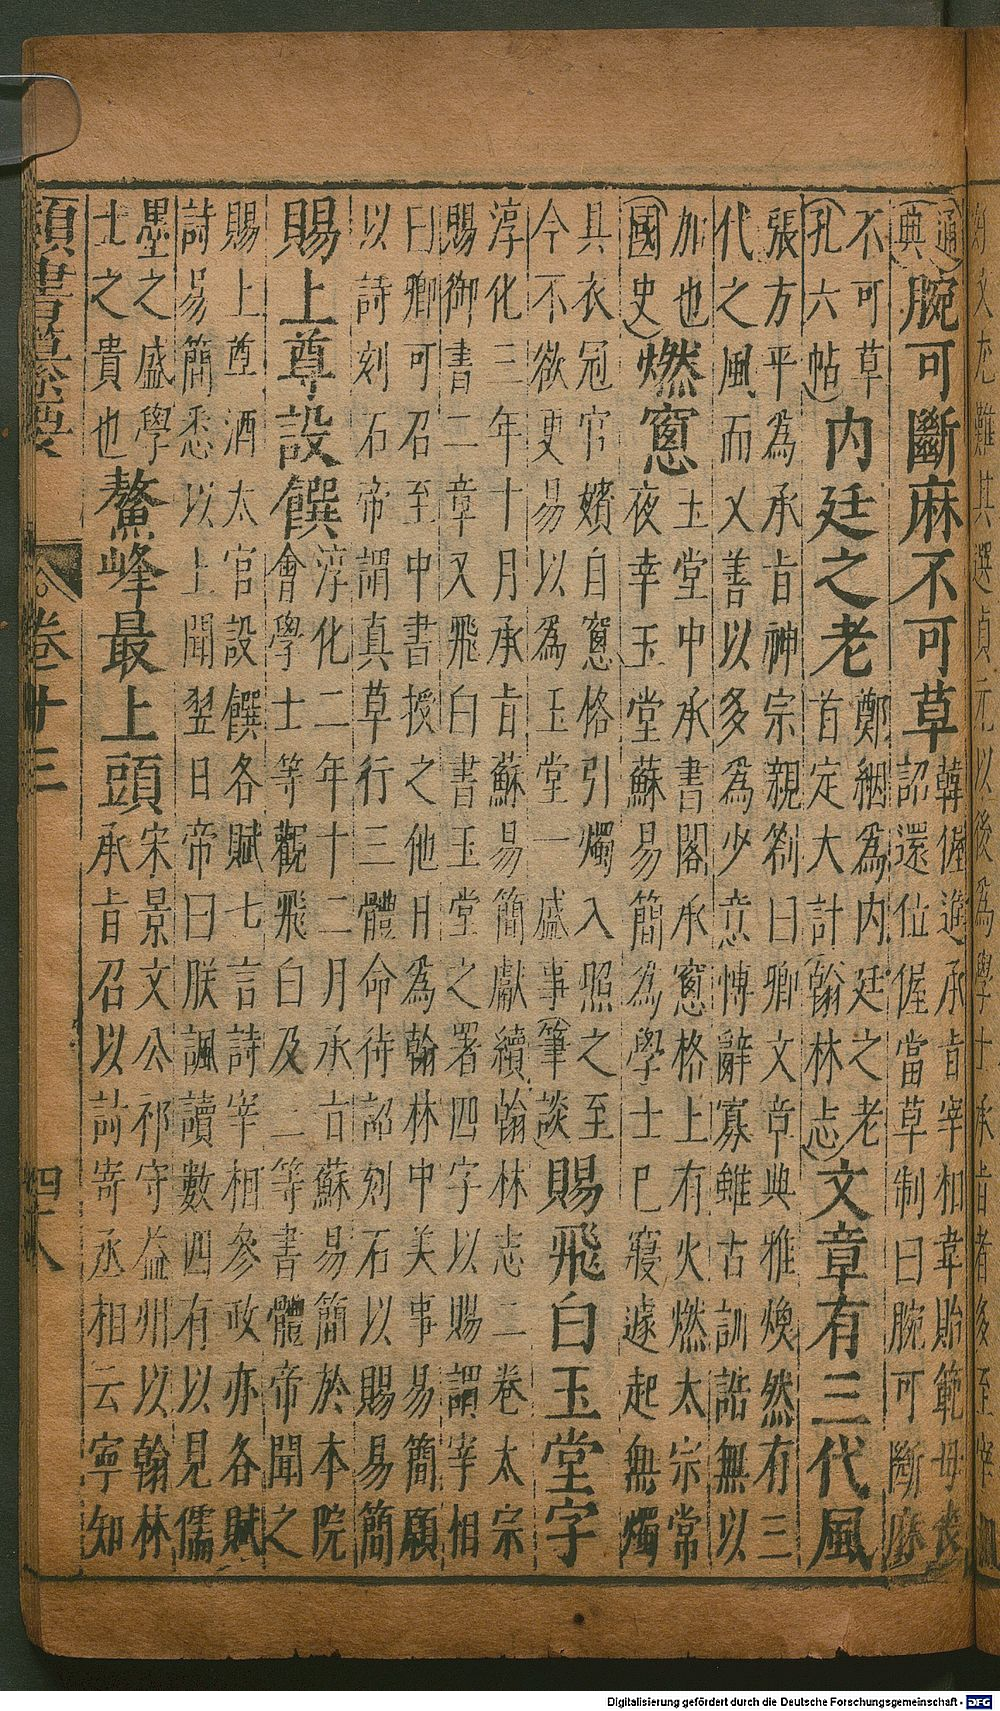 文尤難其選貞元以後為學士承旨者多至宰
通
典
腕可斷麻不可草
韓偓進承旨宰相韋貽範母喪
詔還位偓當草制曰腕可斷麻
不可草
孔六帖
內廷之老
鄭絪為內廷之老
首定大計翰林志
文章有三代風
張方平為承旨神宗親劄曰卿文章典雅煥然有三
代之風而又善以多為少意愽辭寡雖古訓誥無以
加也
國史
燃窻
玉堂中承書閣承窻格上有火燃太宗常
夜幸玉堂蘇易簡為學士已寢遽起無燭
具衣冠宮嬪自窻格引燭入照之至
今不欲更易以為玉堂一盛事筆談
賜飛白玉堂字
淳化三年十月承旨蘇易簡獻續翰林志二卷太宗
賜御書二章又飛白書玉堂之署四字以賜謂宰相
曰卿可召至中書授之他日為翰林中美事易簡願
以詩刻石帝謂真草行三體命待詔刻石以賜易簡
賜上尊設饌
淳化二年十二月承旨蘇易簡於本院
會學士等觀飛白及二等書體帝聞之
賜上尊酒太官設饌各賦七言詩宰相參政亦各賦
詩易簡悉以上聞翌日帝曰朕諷讀數四有以見儒
墨之盛學
士之貴也
鰲峰最上頭
宋景文公祁守益州以翰林
承旨召以詩寄丞相云寧知
類書纂要
卷廿三
四十八
Digitalisierung gefördert durch die Deutsche Forschungsgemeinschaft - DFG